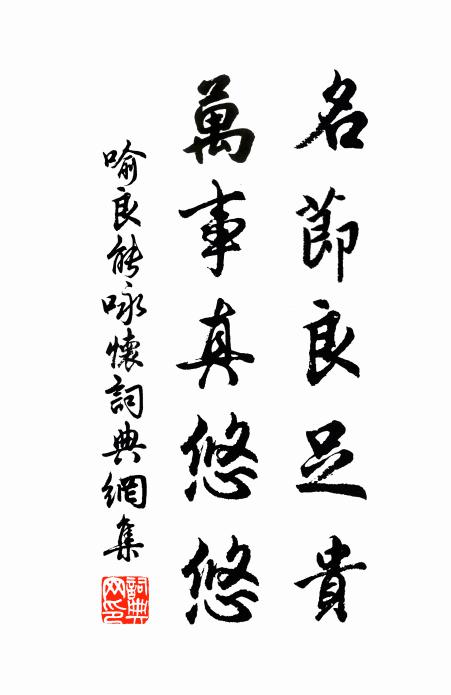 名節良足貴
萬事真悠悠
喻良能詠懷詞典網集
詞典網印